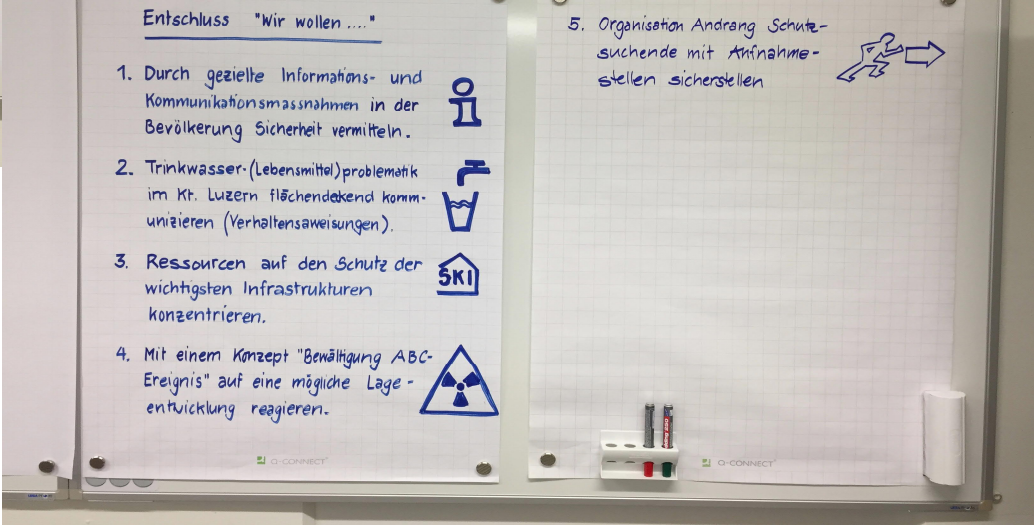 Entschluss "Wir wollen ...."
1. Durch gezielte Informations- und
Kommunikationsmassnahmen in der
Bevölkerung Sicherheit vermitteln.
2. Trinkwasser-(Lebensmittel)problematik
im Kt. Luzern flächendekend komm-
unizieren (Verhaltensaweisungen).
3. Ressourcen auf den Schutz der
wichtigsten Infrastrukturen
konzentrieren.
SKI
4. Mit einem Konzept "Bewältigung ABC-
Ereignis" auf eine mögliche Lage-
entwicklung reagieren.
Q-CONNECT
5. Organisation Andrang Schutz-
suchende mit Aufnahme-
stellen sicherstellen
Q-CONNECT